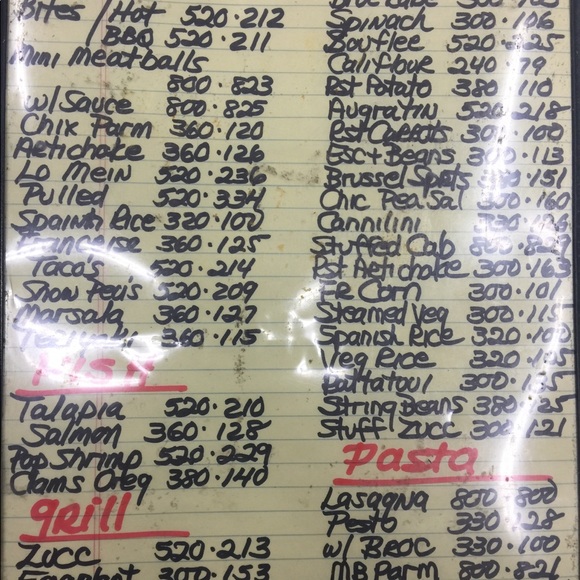 Bites / Hot 520·212
/ BBQ 520·211
Mini Meatballs
800·823
w/ Sauce 800·825
Chix Parm 360·120
Artichoke 360·126
Lo Mein 520·236
Pulled 520·334
Spainsh Rice 320·100
Francaise 360·125
Taco's 520·214
Show Pea's 520·209
Marsala 360·127
360·115
Fish
Talapia 520·210
Salmon 360·128
Pop Shrimp 520·229
Clams Oreg 380·140
grill
Zucc 520·213
Eggplant 300·153
Spinach 300·106
Bowflee 520·225
Califlour 240·79
Rst Potato 380·110
Augratin 520·218
Rst Carrots 300·100
Esc+Beans 300·113
Brussel Spots 300·151
Chic Pea Sal 300·160
Cannilini 330·
Stuffed Cab 800·829
Rst Artichoke 300·163
Fr Corn 300·101
Steamed Veg 300·115
Spanish Rice 320·100
Veg Rice 320·105
Rattatoul 300·
String Beans 380·125
Stuff Zucc 300·121
Pasta
Lasagna 800·800
Pesto 330·128
w/ Broc 330·
MB Parm 800·821